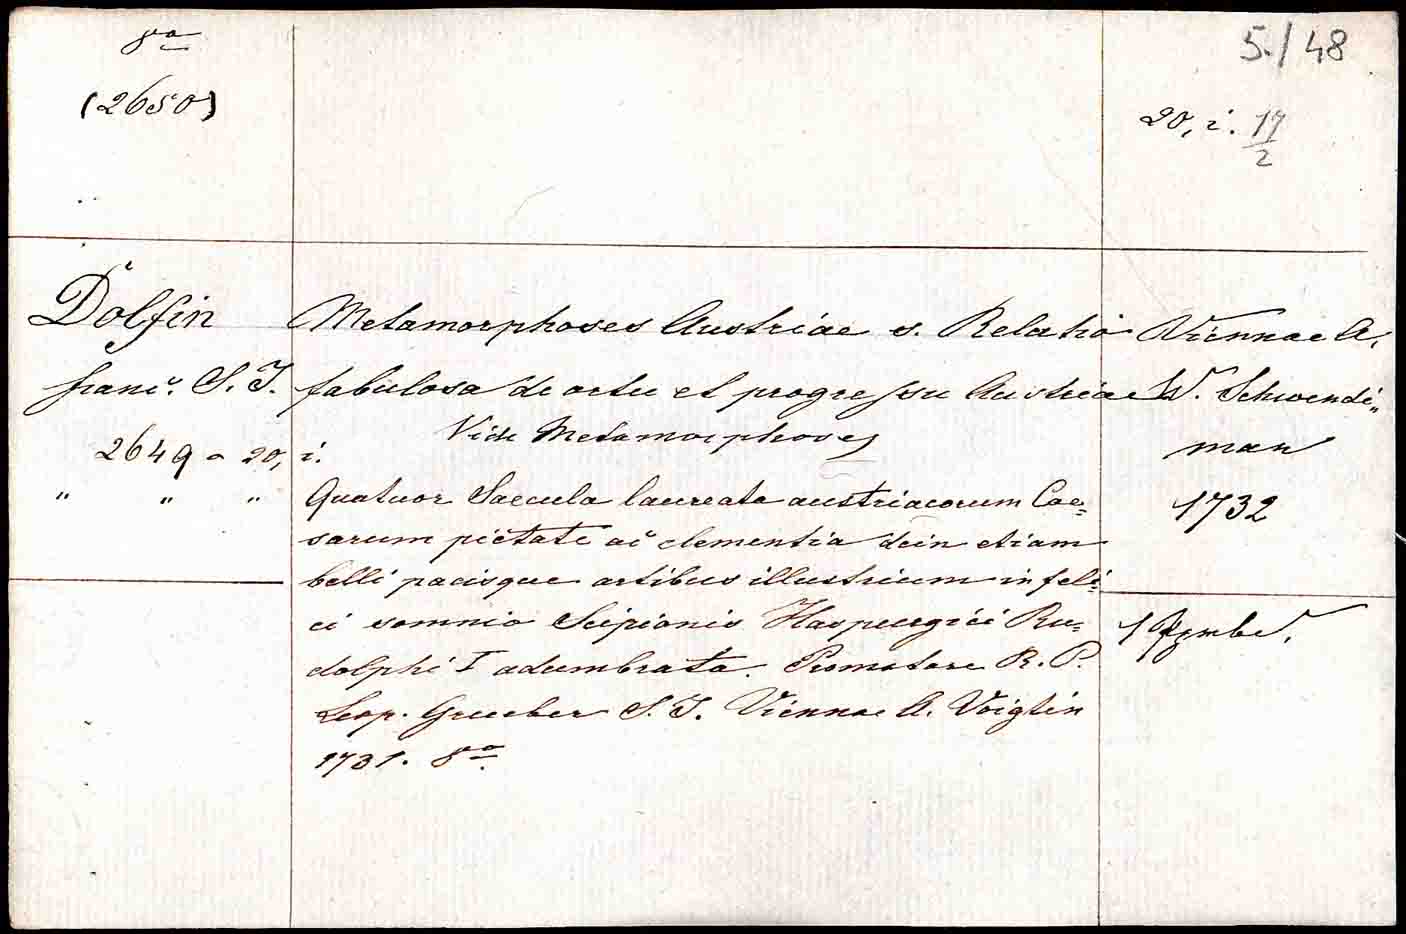 8o
(2650)
5./48
20, i. 17/2
Dolfin
franc. S. J.
2649 - 20, i.
" " "
Metamorphoses Austriae s. Relatio
fabulosa de ortu et progressu Austriae
Vide Metamorphoses
Quatuor Saecula laureata austriacorum Cae=
sarum pietate ac clementia dein etiam
belli pacisque artibus illustrium in feli=
ci somnio Scipionis Haspurgici Ru=
dolphi I adumbrata. Promotore R. P.
Leop. Grueber S. J. Viennae A. Voigtin
1731. 8o
Viennae A.
W. Schwendi=
man
1732
1 Hzmbd.